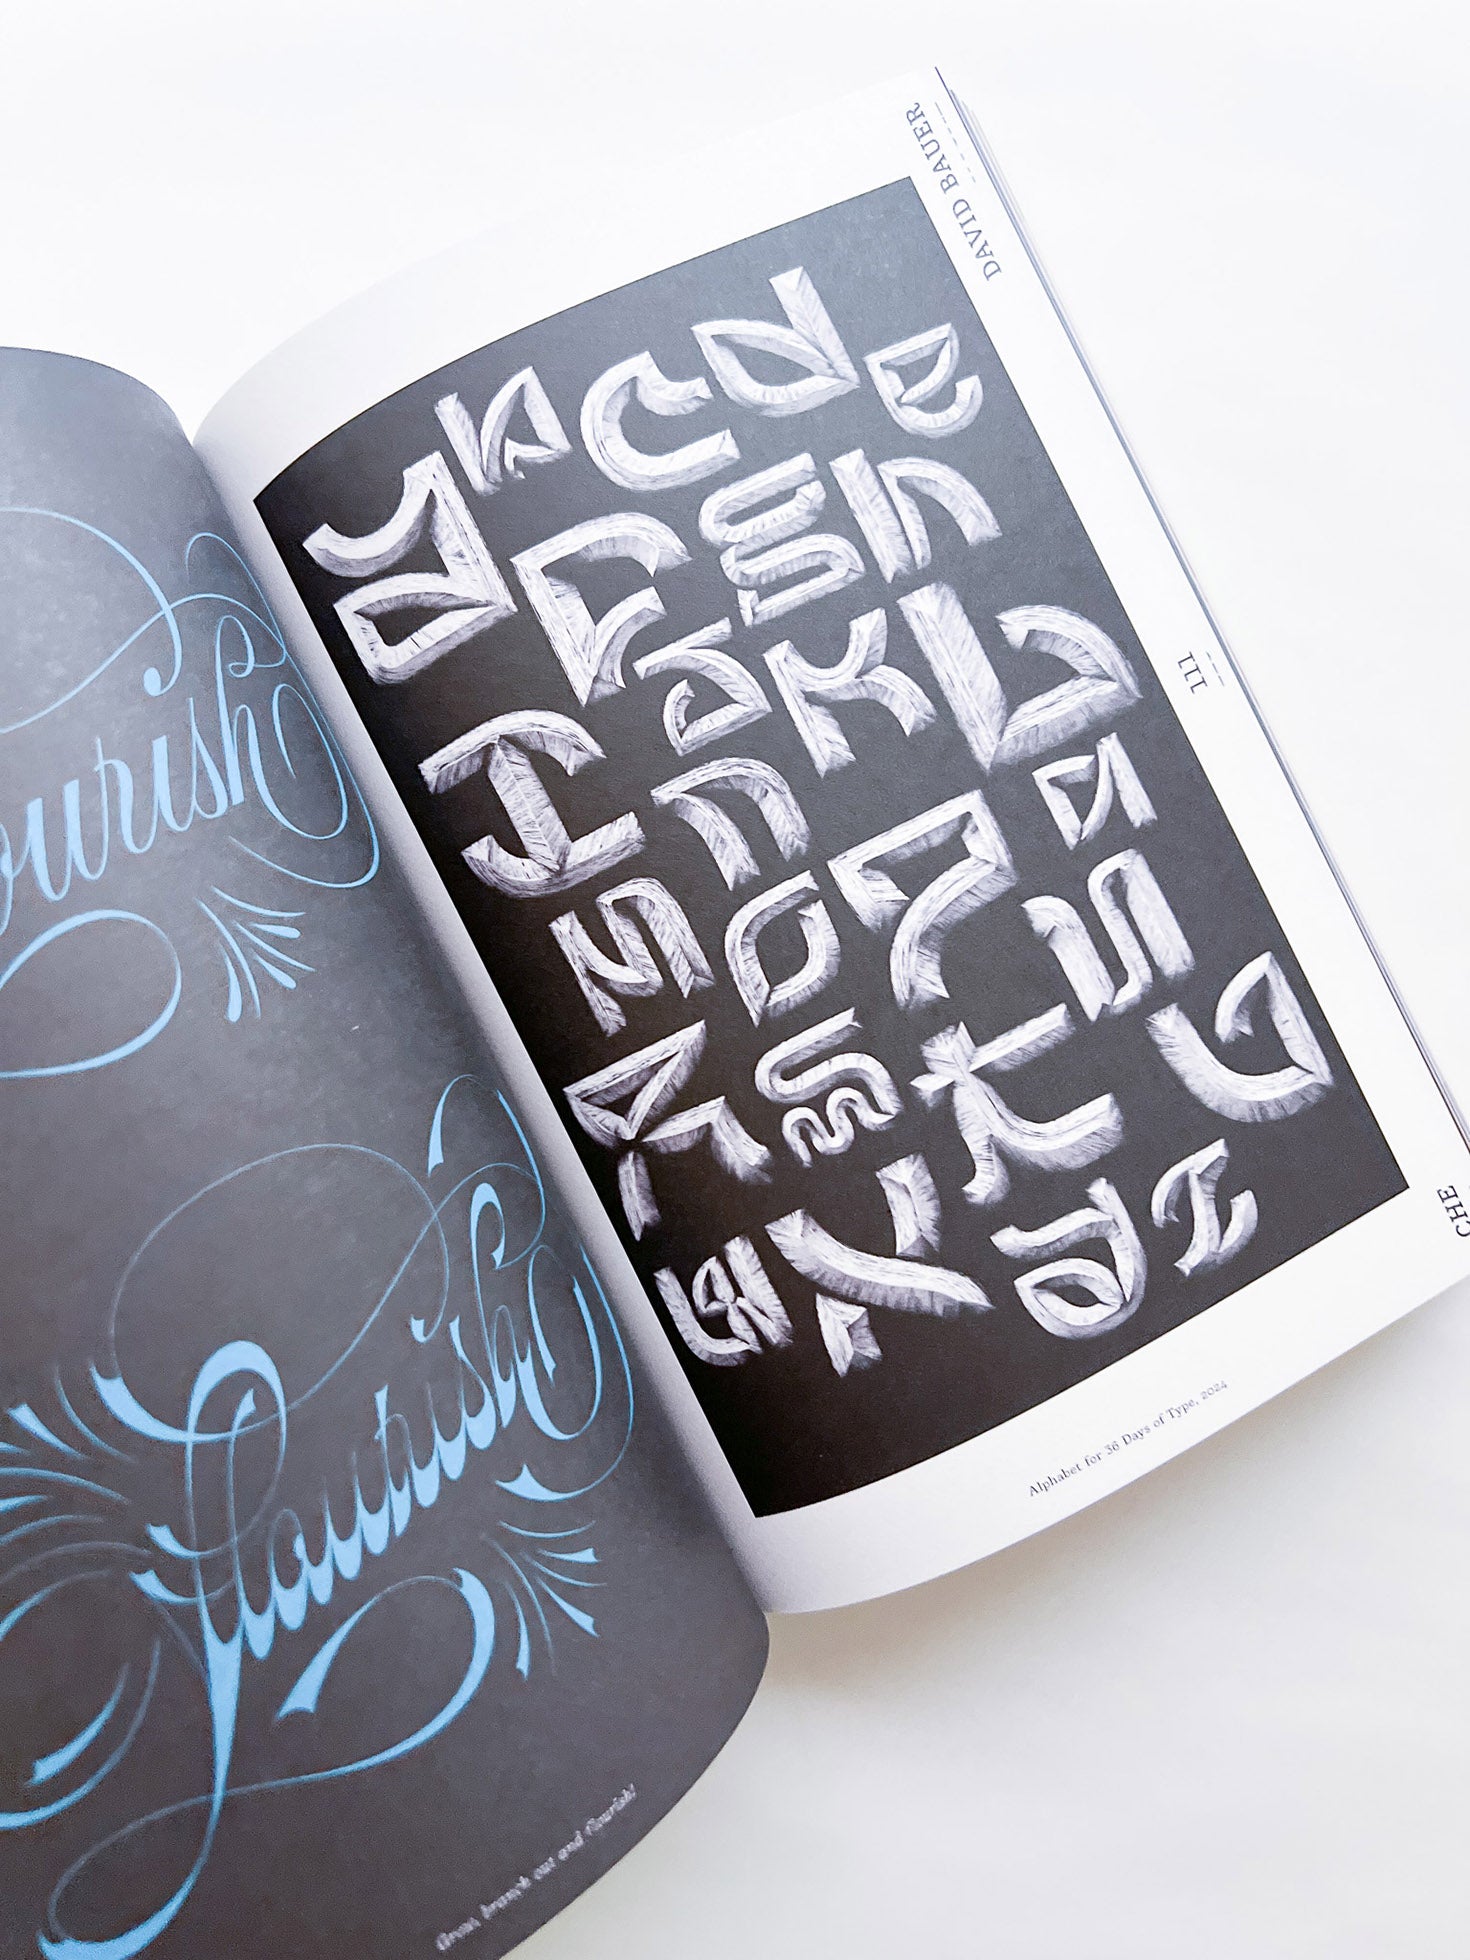 ourish
flourish
Grow, branch out and flourish!
DAVID BAUER
a b c d e
f g h
i j k l
m n o p q
r s t u v
w x y z
111
CHE
Alphabet for 36 Days of Type, 2024